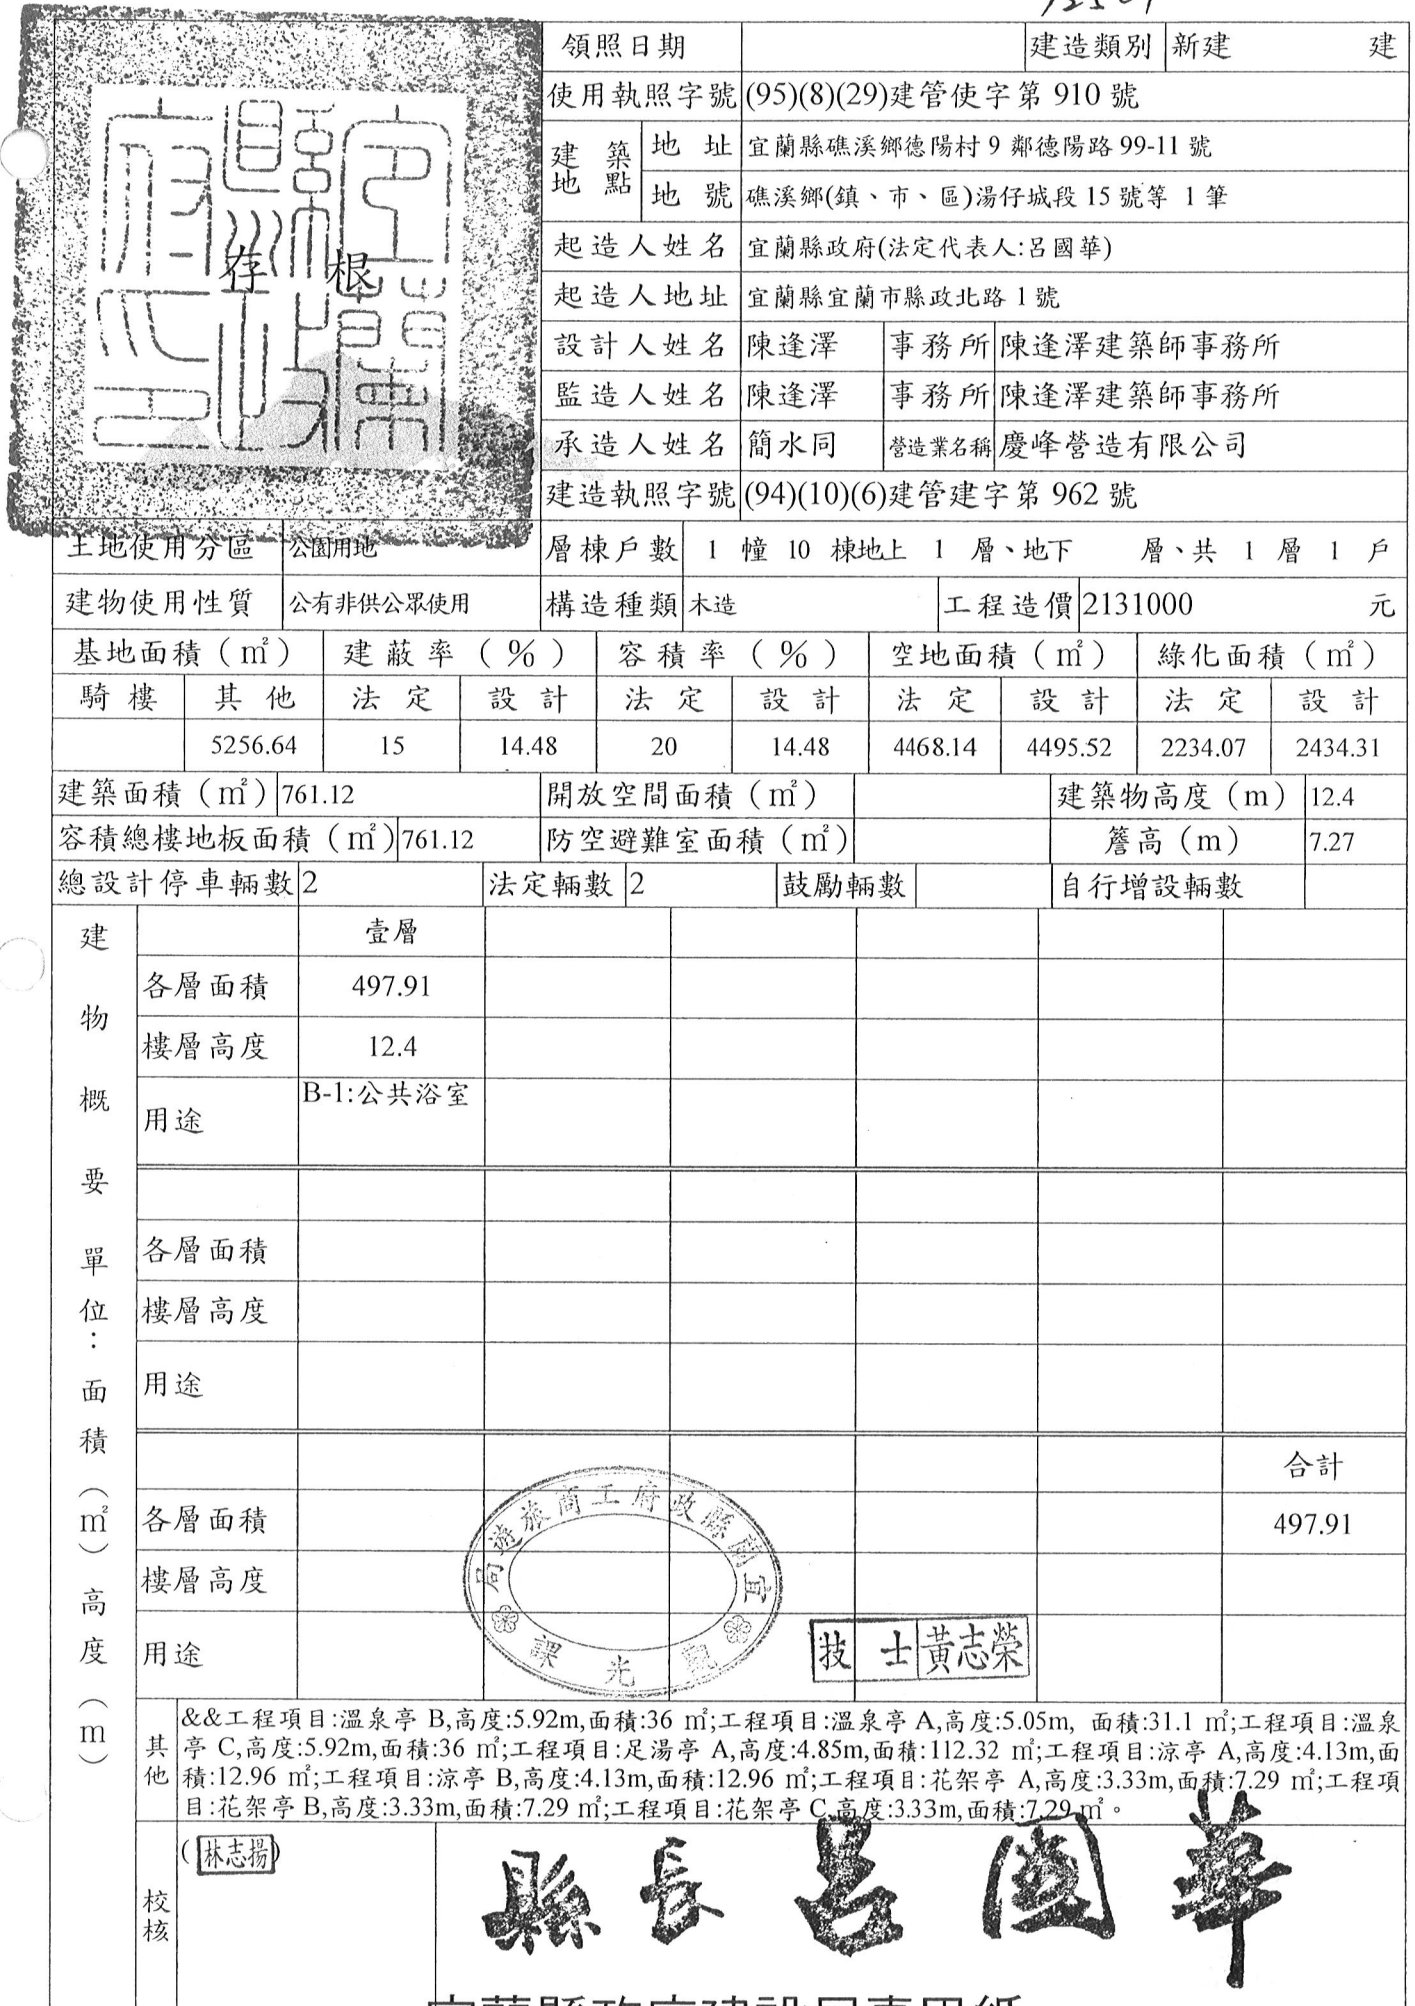 領照日期 建造類別 新建 建
使用執照字號 (95)(8)(29)建管使字第 910 號
建築地點 地址 宜蘭縣礁溪鄉德陽村 9 鄰德陽路 99-11 號
地號 礁溪鄉(鎮、市、區)湯仔城段 15 號等 1 筆
存根
起造人姓名 宜蘭縣政府(法定代表人:呂國華)
起造人地址 宜蘭縣宜蘭市縣政北路 1 號
設計人姓名 陳逢澤 事務所 陳逢澤建築師事務所
監造人姓名 陳逢澤 事務所 陳逢澤建築師事務所
承造人姓名 簡水同 營造業名稱 慶峰營造有限公司
建造執照字號 (94)(10)(6)建管建字第 962 號
土地使用分區 公園用地 層棟戶數 1 幢 10 棟地上 1 層、地下 層、共 1 層 1 戶
建物使用性質 公有非供公眾使用 構造種類 木造 工程造價 2131000 元
基地面積(㎡) 建蔽率(%) 容積率(%) 空地面積(㎡) 綠化面積(㎡)
騎樓 其他 法定 設計 法定 設計 法定 設計 法定 設計
5256.64 15 14.48 20 14.48 4468.14 4495.52 2234.07 2434.31
建築面積(㎡) 761.12 開放空間面積(㎡) 建築物高度(m) 12.4
容積總樓地板面積(㎡) 761.12 防空避難室面積(㎡) 簷高(m) 7.27
總設計停車輛數 2 法定輛數 2 鼓勵輛數 自行增設輛數
建物概要單位:面積(㎡)高度(m)
壹層
各層面積 497.91
樓層高度 12.4
用途 B-1:公共浴室
各層面積
樓層高度
用途
合計
各層面積 497.91
樓層高度
用途
宜蘭縣政府工商旅遊局
觀光課
技士 黃志榮
其他
&&工程項目:溫泉亭 B,高度:5.92m,面積:36 ㎡;工程項目:溫泉亭 A,高度:5.05m, 面積:31.1 ㎡;工程項目:溫泉
亭 C,高度:5.92m,面積:36 ㎡;工程項目:足湯亭 A,高度:4.85m,面積:112.32 ㎡;工程項目:涼亭 A,高度:4.13m,面
積:12.96 ㎡;工程項目:涼亭 B,高度:4.13m,面積:12.96 ㎡;工程項目:花架亭 A,高度:3.33m,面積:7.29 ㎡;工程項
目:花架亭 B,高度:3.33m,面積:7.29 ㎡;工程項目:花架亭 C,高度:3.33m,面積:7.29 ㎡。
校核 (林志揚)
縣長呂國華